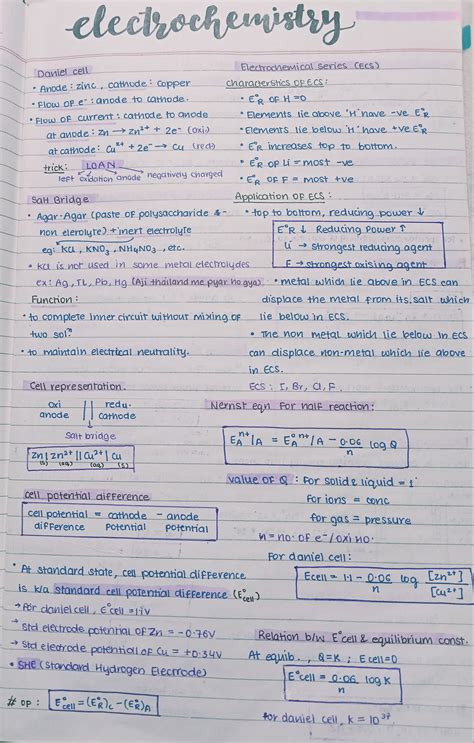 electrochemistry
Daniel cell
• Anode: zinc, cathode: copper
• Flow of e⁻: anode to cathode.
• Flow of current: cathode to anode
at anode: Zn → Zn²⁺ + 2e⁻ (oxi)
at cathode: Cu²⁺ + 2e⁻ → Cu (red)
trick: LOAN
left oxidation anode negatively charged
Salt Bridge
• Agar-Agar (paste of polysaccharide &
non elerolyte) + inert electrolyte
eg: KCl, KNO₃, NH₄NO₃, etc.
• KCl is not used in some metal electrolydes
ex: Ag, TL, Pb, Hg (Aji thailand me pyar ho gya)
Function:
• to complete inner circuit without mixing of
two solⁿ.
• to maintain electrical neutrality.
Cell representation.
oxi || redu.
anode || cathode
Salt bridge
Zn|Zn²⁺||Cu²⁺|Cu
(s) (aq) (aq) (s)
cell potential difference
cell potential = cathode - anode
difference potential potential
• At standard state, cell potential difference
is k/a standard cell potential difference (E°cell)
→ For daniel cell, E°cell = 1.1V
→ Std electrode potential of Zn = -0.76V
→ Std electrode potential of Cu = +0.34V
• SHE (Standard Hydrogen Electrode)
# op: E°cell = (E°R)c - (E°R)A
Electrochemical series (ECS)
Characterstics OF ECS:
• E°R OF H = 0
• Elements lie above 'H' have -ve E°R
• Elements lie below 'H' have +ve E°R
• E°R increases top to bottom.
• E°R OF Li = most -ve
• E°R OF F = most +ve
Application OF ECS:
• top to bottom, reducing power ↓
E°R ↓ Reducing Power ↑
Li → strongest reducing agent
F → strongest oxising agent
• metal which lie above in ECS can
displace the metal from its salt which
lie below in ECS.
• The non metal which lie below in ECS
can displace non-metal which lie above
in ECS.
ECS: I, Br, Cl, F.
Nernst eqn For half reaction:
E Aⁿ⁺|A = E° Aⁿ⁺/A - 0.06/n log Q
value OF Q: for solid & liquid = 1
for ions = conc
for gas = pressure
n = no. of e⁻/oxi no.
For daniel cell:
Ecell = 1.1 - 0.06/n log [Zn²⁺]/[Cu²⁺]
Relation b/w E°cell & equilibrium const.
At equib., Q=K; Ecell=0
E°cell = 0.06/n log K
for daniel cell, K = 10³⁷